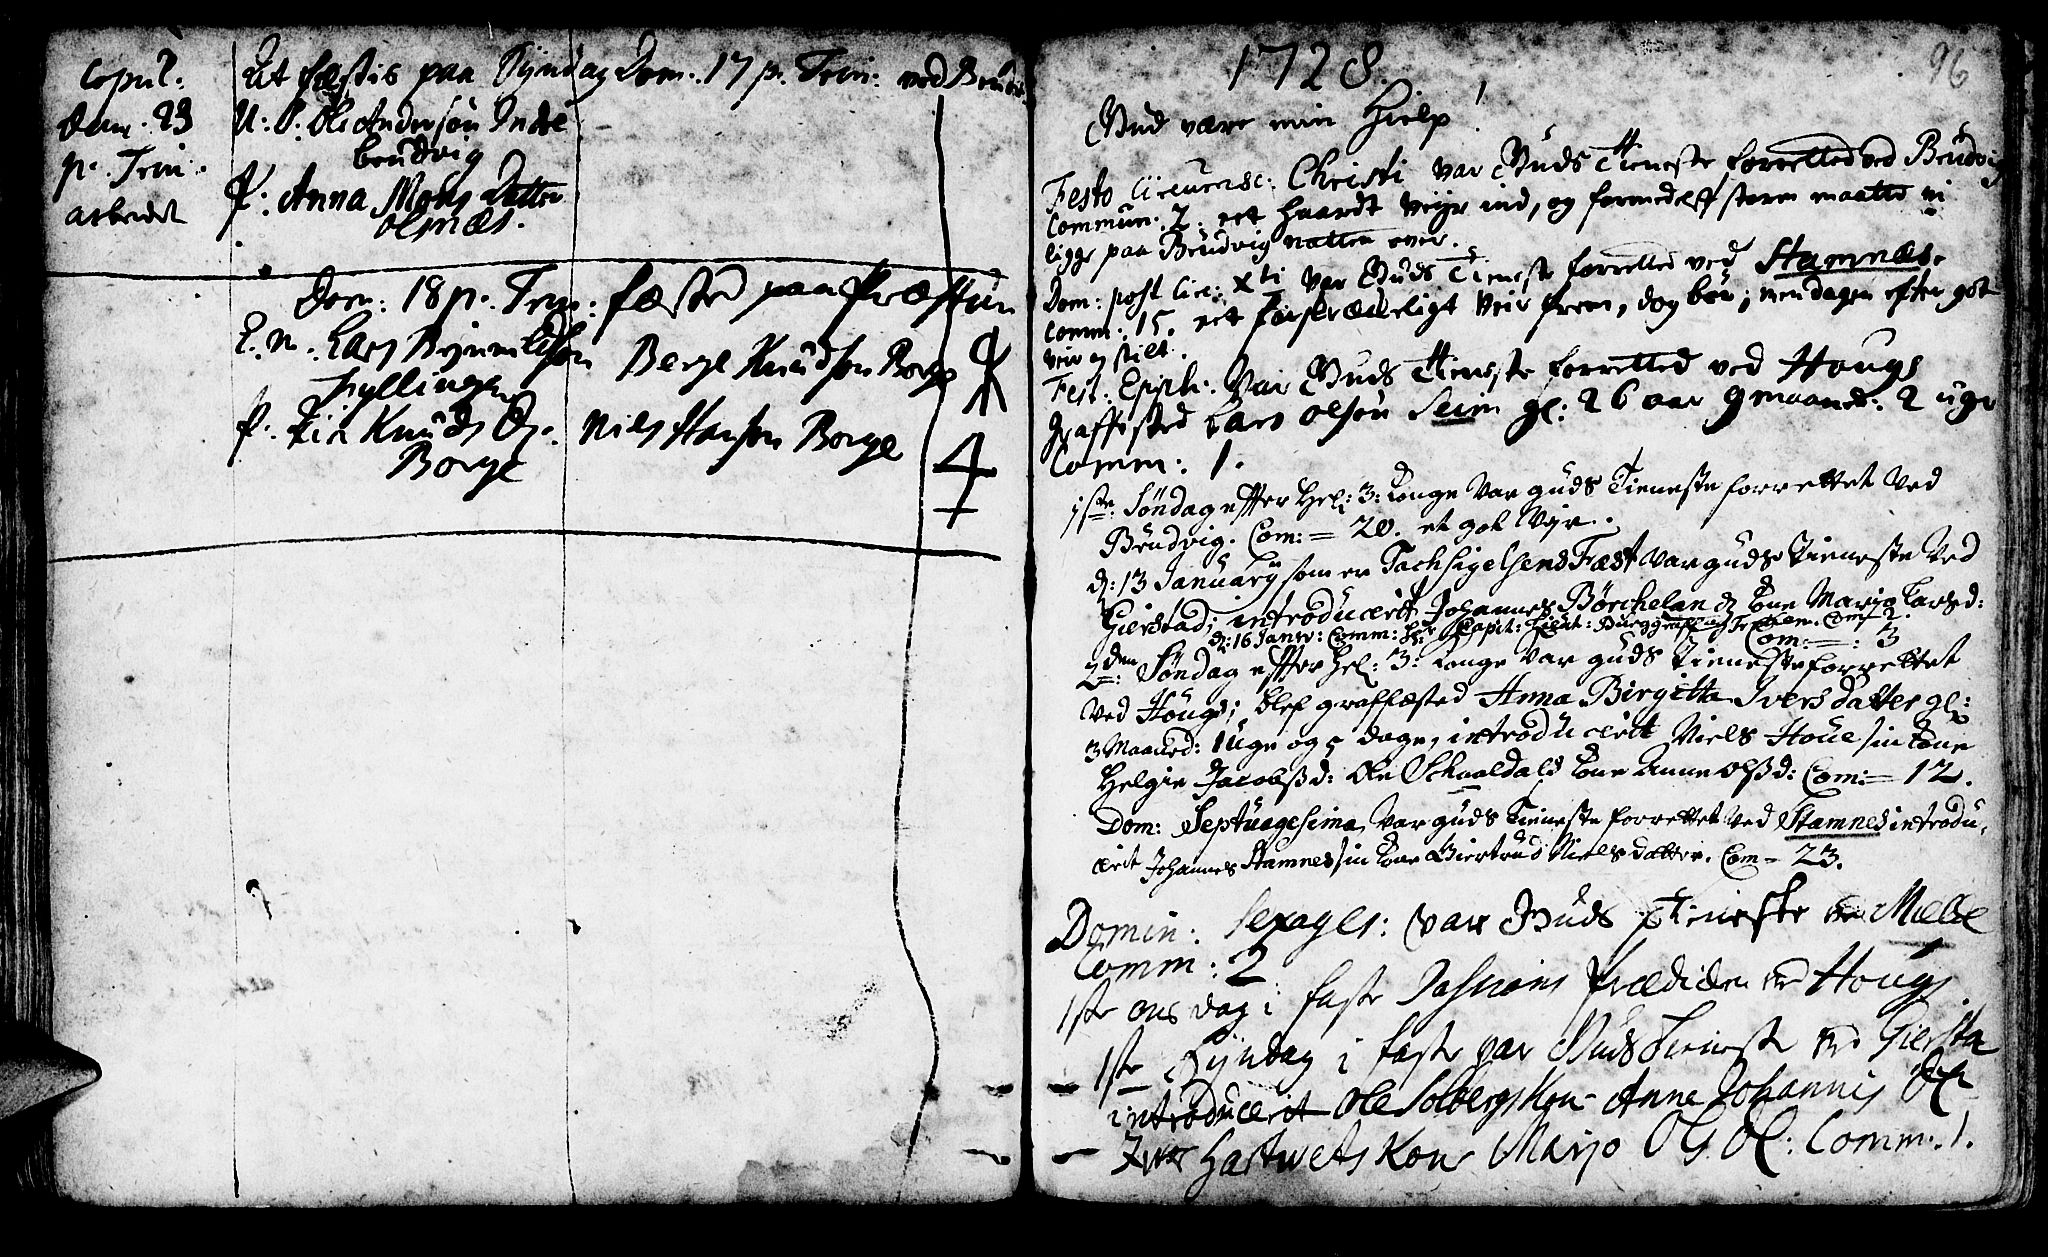 Copul.
Dom. 23
p. Trin.
arbeidet
At fæstis paa Syndag Dom. 17 p. Trin. ved Brudv.
U: P. Ole Andersøn Indre
brudvig
P: Anna Mons Datter
Olsnæs.
Dom: 18 p. Trin: fæsted paa Præstun
E. M. Lars Brynnildsøn
Fyllingen
Berge Knudsøn Borge
P. Knuds D.
Borge
Nils Hansøn Borge
4
1728.
96
Gud være min Hielp!
Festo Circumcis: Christi var Guds Tieneste forretted ved Brudvig
Commun. 2. ret haardt veyr ind, og formedelst storm maatte vi
ligge paa Brudvig natten over.
Dom: post Circ: Xti var Guds Tieneste forretted ved Stamnæs.
Comm: 15. ret forskrækkeligt veir frem, dog bør; men dagen efter got
veir og stilt.
Fest. Epiph: var Guds Tieneste forretted ved Hougs
Graffæsted Lars Olsøn Seim gl: 26 aar 9 maaned: 2 uger
Comm: 1.
1ste Søndag effter Hel: 3: Konge var guds Tieneste forrettet ved
Brudvig. Com:= 20. et got Vejr.
d: 13 January som er Tachsigelsens Fæst var guds Tieneste ved
Gierstad; introducerit Johannes Børchelands Kone Marjo Larsd:
d: 16 Janv: Comm: Hr Capit: Lieut: Com 2.
Com:=: 3
2den Søndag effter Hel: 3: Konge var guds Tieneste forrettet
ved Hougs; blef graffæsted Anna Birgitta Iversdatter gl:
3 Maaned: 1 uge og 5 dage, introducerit Niels Houe sin Kone
Helgie Jacobsd: Ole Schaaldals Kone Anne Olsd: Com:= 12.
Dom: Septuagesima var guds Tieneste forrettet ved Stamnes introdu-
cerit Johannes Stamnes sin Kone Giertrud Nielsdatter. Com= 23.
Domin: Sexages: var Guds Tieneste ved Mielde
Comm: 2
1ste onsdag i faste Passions Prædiken ved Hougs
1ste Syndag i faste var Guds Tieneste ved Giersta
introducerit Ole Solbergs Kone Anne Johannis D.
Iver Hartvets Kone Marjo Ols D: Comm: 1.